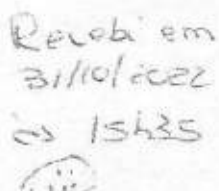 Recebi em
31/10/2022
às 15h35